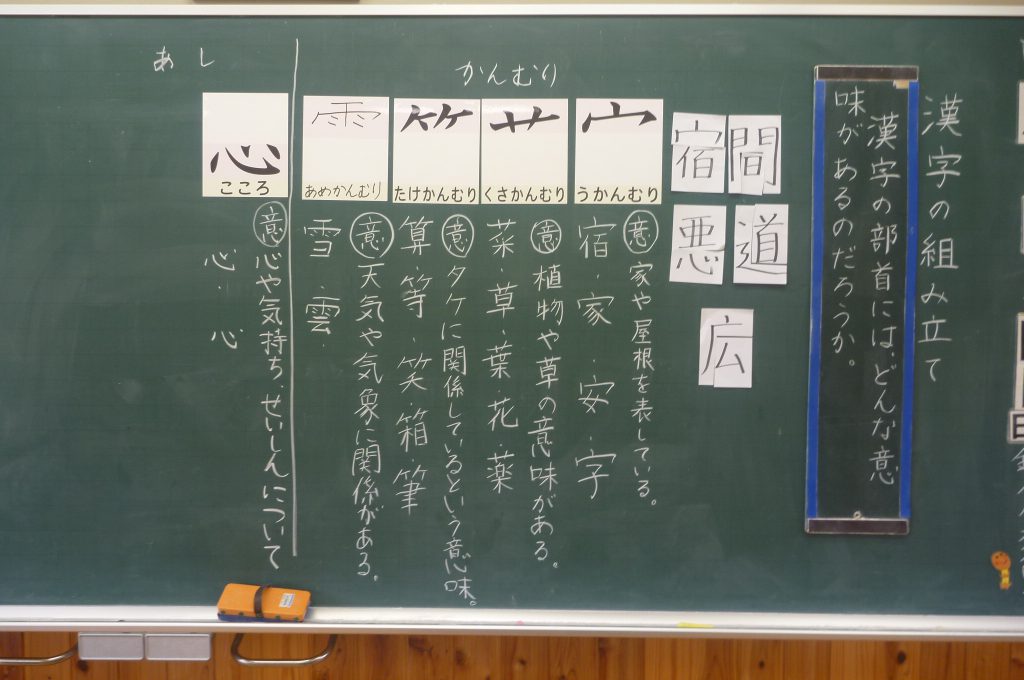 漢字の組み立て
漢字の部首には、どんな意
味があるのだろうか。
間
宿
道
悪
広
かんむり
宀
うかんむり
意 家や屋根を表している。
宿・家・安・字
艹
くさかんむり
意 植物や草の意味がある。
菜・草・葉・花・薬
たけかんむり
意 タケに関係しているという意味。
算・等・笑・箱・筆
あめかんむり
意 天気や気象に関係がある。
雪・雲・
あし
心
こころ
意 心や気持ち、せいしんについて
心・心